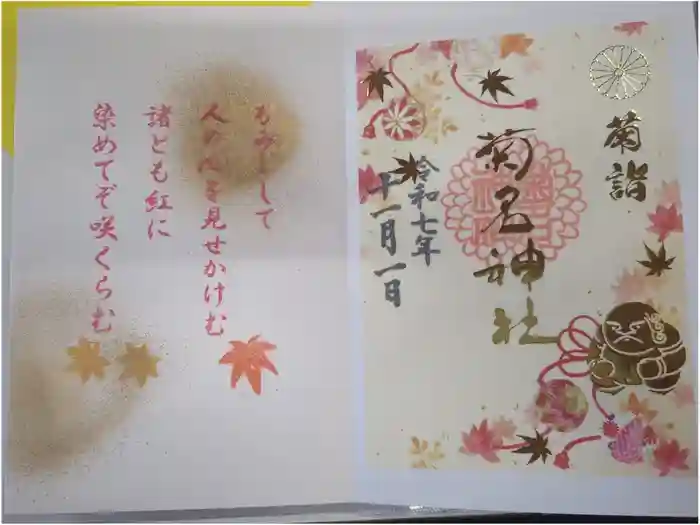 菊詣
菊名神社
令和七年
十一月一日
もみじして
人の心を見せかけむ
諸とも紅に
染めてぞ咲くらむ